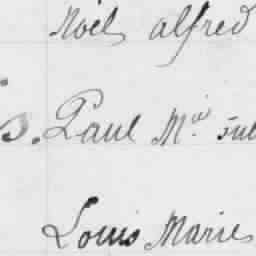 Noël alfred
s. Paul M.ie Jul
Louis Maries